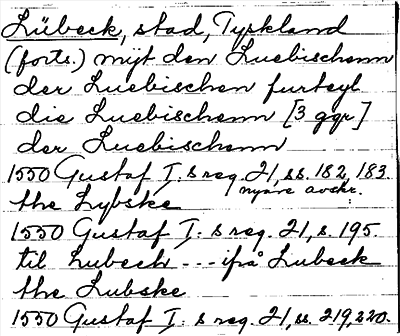 Lübeck, stad, Tyskland
(forts.) mijt den Luebischenn
der Luebischen furteyl
die Luebischenn [3 ggr]
der Luebischenn
1550 Gustaf I:s reg. 21, ss. 182, 183
nyare avskr.
the Lybske
1550 Gustaf I:s reg. 21, s. 195
til Lubech --- ifrå Lubeck
the Lubske
1550 Gustaf I:s reg. 21, ss. 219, 220